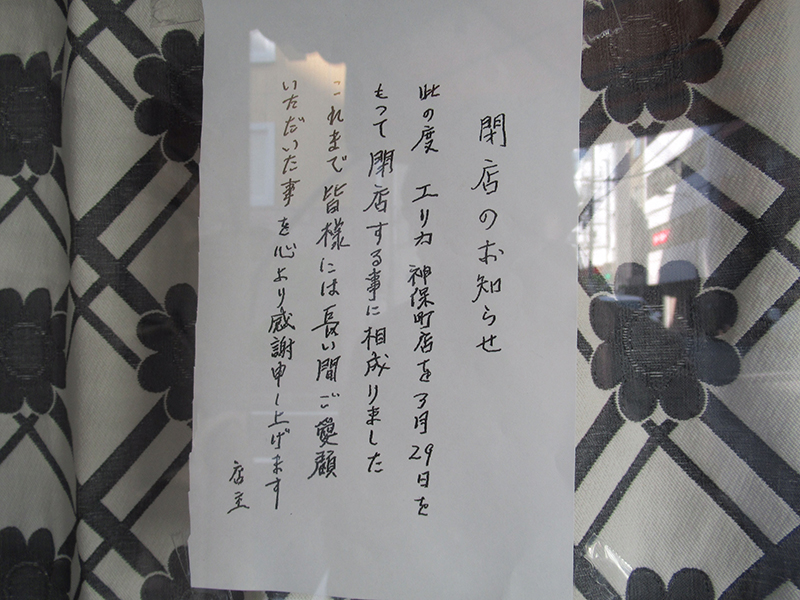 閉店のお知らせ
此の度 エリカ 神保町店を3月29日を
もって閉店する事に相成りました
これまで皆様には長い間ご愛顧
いただいた事を心より感謝申し上げます
店主